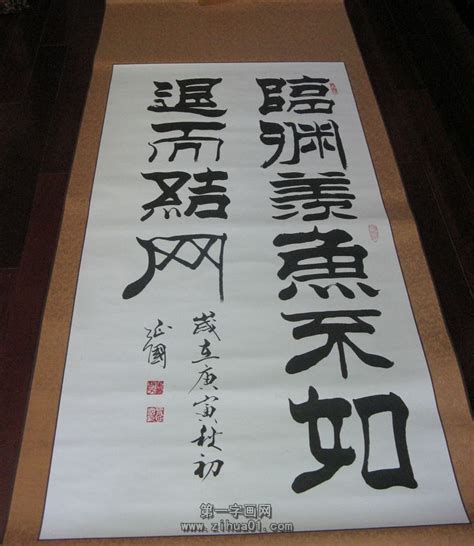 臨渊羡魚不如
退而結网
歳在庚寅秋初
第一字画网
www.zihua01.com